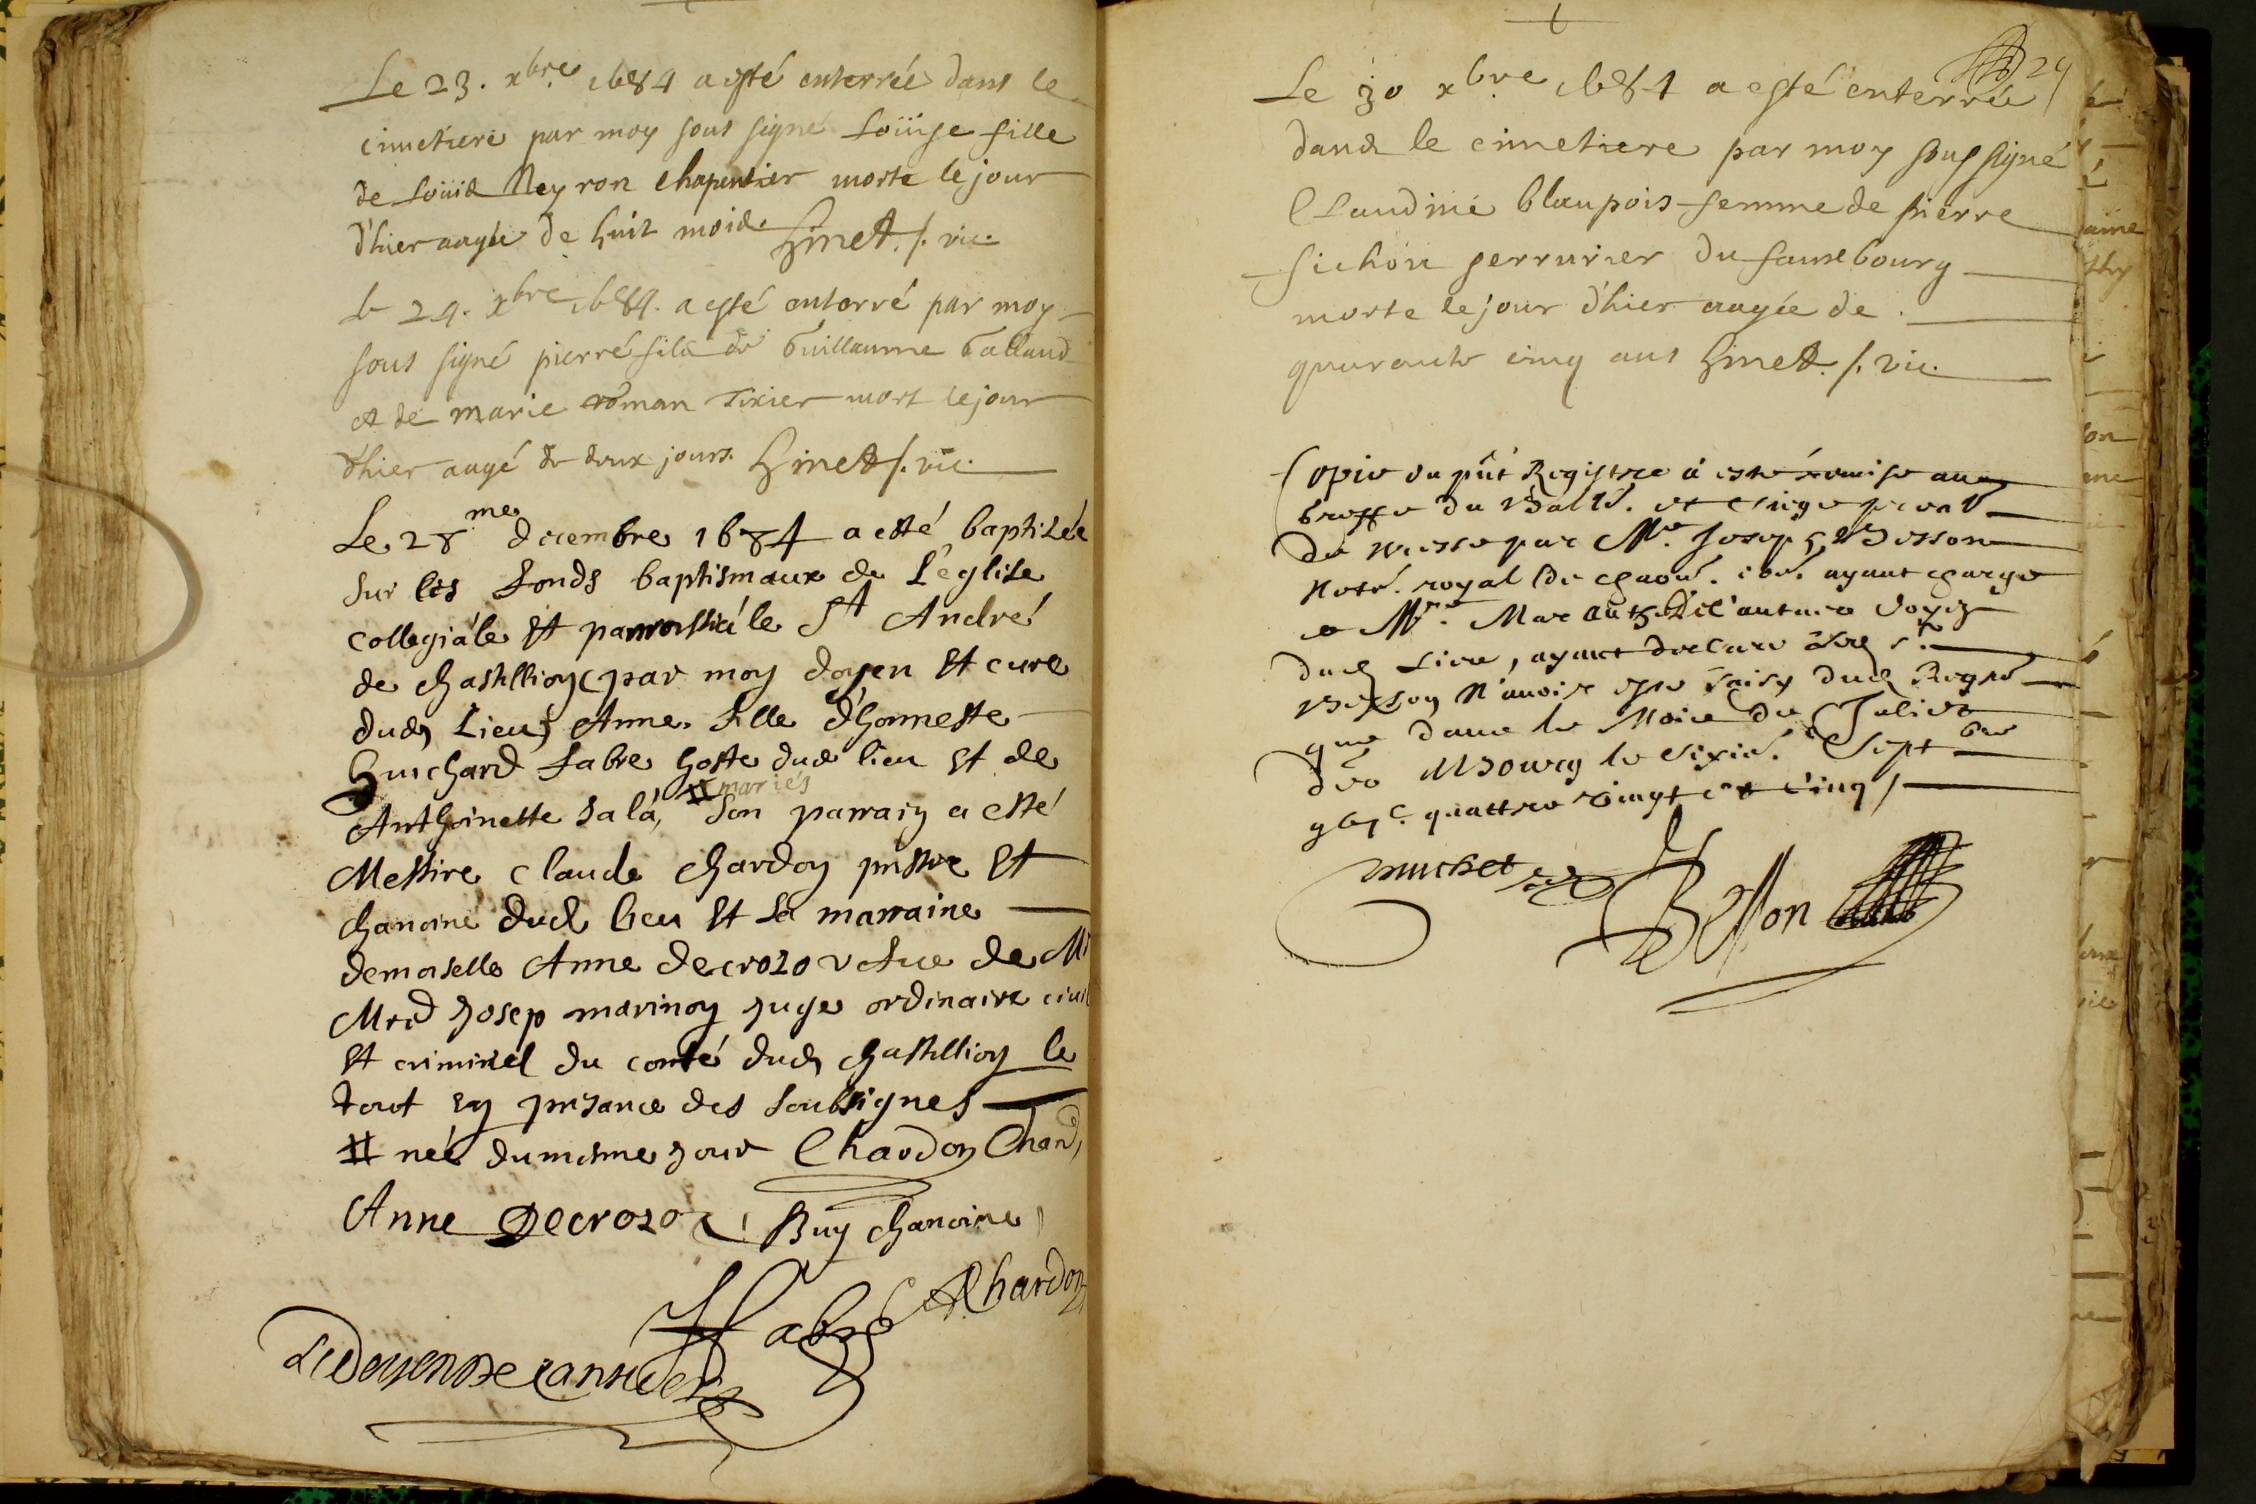 Le 23. xbre 1684 a esté enterrée dans le
cimetiere par moy sous signé Loüise fille
de Loüis Neyron chapentier morte le jour
d'hier aagée de huit mois. Hinet p. vic.
le 24. xbre 1684. a esté enterré par moy
sous signé pierre fils de Guillaume Galland
et de marie roman Tixier mort le jour
d'hier aagé de deux jours. Hinet p. vic.
Le 28me decembre 1684 a esté baptizée
sur les fonds baptismaux de L'églize
collegiále Et parroissiále St André
de chastillion par moy doyen Et curé
dud Lieu Anne fille d'honneste
Guichard fabre hoste dud lieu Et de
mariés
Anthoinette sala, # Son parrain a esté
Messire Claude chardon prestre Et
chanoine dud lieu Et sa marraine
demoiselle Anne decrozo vefue de Mr
Mre Josep marinon Juge ordinaire ciuil
Et criminel du conté dud chastillion le
tout En presance des soubsignes
# neé du mesme Jour Chardon Chan
Anne Decrozo Buy chanoine
fabre Chardon
Le doyen De
24
Le 30 xbre 1684 a esté enterrée
dans le cimetiere par moy soussigné
Claudine blaupois femme de pierre
fichon serrurier du fauxbourg
morte le jour d'hier aagée de
quarante cinq ans Hinet p. vic.
Copie du pñt Registre à esté remise au
Greffe du Balle. et siege
de Bresse par Me. Joseph Besson
Notre. royal de ayant charge
de Mre. Marc Anthe doyen
dud Lieu, ayant declaré led sr.
Besson n'auoir esté saisy dud Regre
que dans le Mois de Juliet
der A Bourg le sixie. Sept bre
gbjc. quattre vingt et cinq
muchet Besson